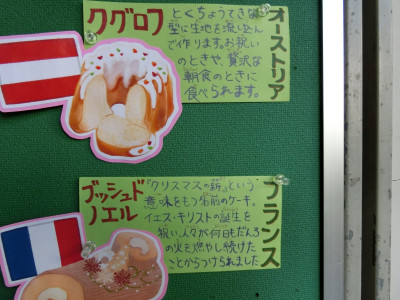 オーストリア
クグロフ
とくちょうてきな
型に生地を流し込ん
で作ります。お祝い
のときや、贅沢な
朝食のときに
食べられます。
フランス
ブッシュド
ノエル
『クリスマスの薪』という
意味をもつ名前のケーキ。
イエス・キリストの誕生を
祝い、人々が何日もだんろ
の火を燃やし続けた
ことからつけられました